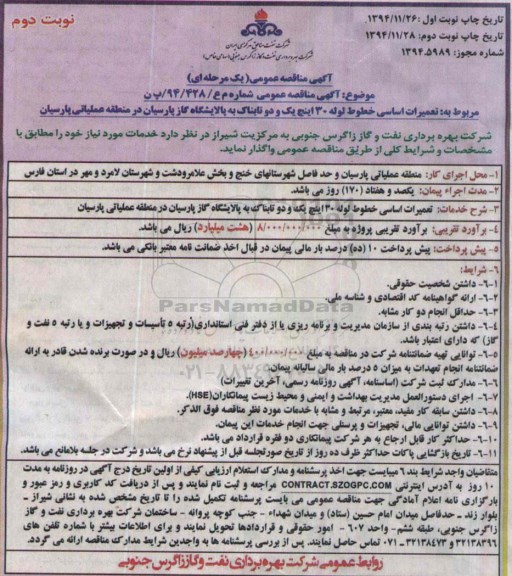 تاریخ چاپ نوبت اول: ۱۳۹۴/۱۱/۲۶
تاریخ چاپ نوبت دوم: ۱۳۹۴/۱۱/۲۸
شماره مجوز: ۱۳۹۴.۵۹۸۹
نوبت دوم
شرکت نفت مناطق مرکزی ایران
شرکت بهره برداری نفت و گاز زاگرس جنوبی (سهامی خاص)
آگهی مناقصه عمومی( یک مرحله ای)
موضوع: آگهی مناقصه عمومی شماره م ع/ ۹۴/۴۲۸/ پ ن
مربوط به: تعمیرات اساسی خطوط لوله ۳۰ اینچ یک و دو تابناک به پالایشگاه گاز پارسیان در منطقه عملیاتی پارسیان
شرکت بهره برداری نفت و گاز زاگرس جنوبی به مرکزیت شیراز در نظر دارد خدمات مورد نیاز خود را مطابق با
مشخصات و شرایط کلی از طریق مناقصه عمومی واگذار نماید.
۱- محل اجرای کار: منطقه عملیاتی پارسیان و حد فاصل شهرستانهای خنج و بخش علامرودشت و شهرستان لامرد و مهر در استان فارس
۲- مدت اجراء پیمان: یکصد و هفتاد (۱۷۰) روز می باشد.
۳- شرح خدمات: تعمیرات اساسی خطوط لوله ۳۰ اینچ یک و دو تابناک به پالایشگاه گاز پارسیان در منطقه عملیاتی پارسیان
۴- برآورد تقریبی: برآورد تقریبی پروژه به مبلغ ۸/۰۰۰/۰۰۰/۰۰۰ (هشت میلیارد) ریال می باشد.
۵- پیش پرداخت: پیش پرداخت ۱۰ (ده) درصد بار مالی پیمان در قبال اخذ ضمانت نامه معتبر بانکی می باشد.
۶- شرایط:
۶-۱- داشتن شخصیت حقوقی.
۶-۲- ارائه گواهینامه کد اقتصادی و شناسه ملی.
۶-۳- حداقل انجام دو کار مشابه.
۶-۴- داشتن رتبه بندی از سازمان مدیریت و برنامه ریزی یا از دفتر فنی استانداری(رتبه ۵ تأسیسات و تجهیزات و یا رتبه ۵ نفت و
گاز) که دارای اعتبار باشد.
۶-۵- توانایی تهیه ضمانتنامه شرکت در مناقصه به مبلغ ۴۰۰/۰۰۰/۰۰۰ (چهارصد میلیون) ریال و در صورت برنده شدن قادر به ارائه
ضمانتنامه انجام تعهدات به میزان ۵ درصد بار مالی سالیانه پیمان
۶-۶- مدارک ثبت شرکت (اساسنامه، آگهی روزنامه رسمی، آخرین تغییرات)
۶-۷- اجرای دستورالعمل مدیریت بهداشت و ایمنی و محیط زیست پیمانکاران(HSE).
۶-۸- داشتن سابقه کار مفید، معتبر، مرتبط و مشابه با خدمات مورد نظر مناقصه فوق الذکر.
۶-۹- داشتن توانایی مالی، تجهیزات و پرسنلی جهت انجام خدمات این پیمان.
۶-۱۰- حداکثر کار قابل ارجاع به هر شرکت پیمانکاری دو فقره قرارداد می باشد.
۶-۱۱- تاریخ بازگشایی پاکات حداکثر ظرف ده روز از تاریخ صورتجلسه قبل از پیشنهاد نرخ می باشد و شرکت در جلسه بلامانع می باشد.
متقاضیان واجد شرایط بند ۶ میبایست جهت اخذ پرسشنامه و مدارک استعلام ارزیابی کیفی از اولین تاریخ درج آگهی در روزنامه به مدت
۱۰ روز به آدرس اینترنتی CONTRACT.SZOGPC.COM مراجعه و ثبت نام نمایند و پس از دریافت کد کاربری و رمز عبور و
بارگزاری نامه اعلام آمادگی جهت مناقصه عمومی می بایست پرسشنامه تکمیل شده را تا تاریخ مشخص شده به نشانی شیراز -
بلوار زند - حدفاصل میدان امام حسین (ستاد) و میدان شهداء - جنب کوچه پروانه - ساختمان شرکت بهره برداری نفت و گاز
زاگرس جنوبی، طبقه ششم- واحد ۶۰۷ - امور حقوقی و قراردادها تحویل نمایند و برای اطلاعات بیشتر با شماره تلفن های
۳۲۱۳۸۳۹۶ و ۳۲۱۳۸۴۷۳ - ۰۷۱ تماس حاصل نمایند. پس از بررسی پرسشنامه ها به واجدین شرایط مدارک مناقصه ارائه می گردد.
روابط عمومی شرکت بهره برداری نفت و گاز زاگرس جنوبی
ParsNamadData